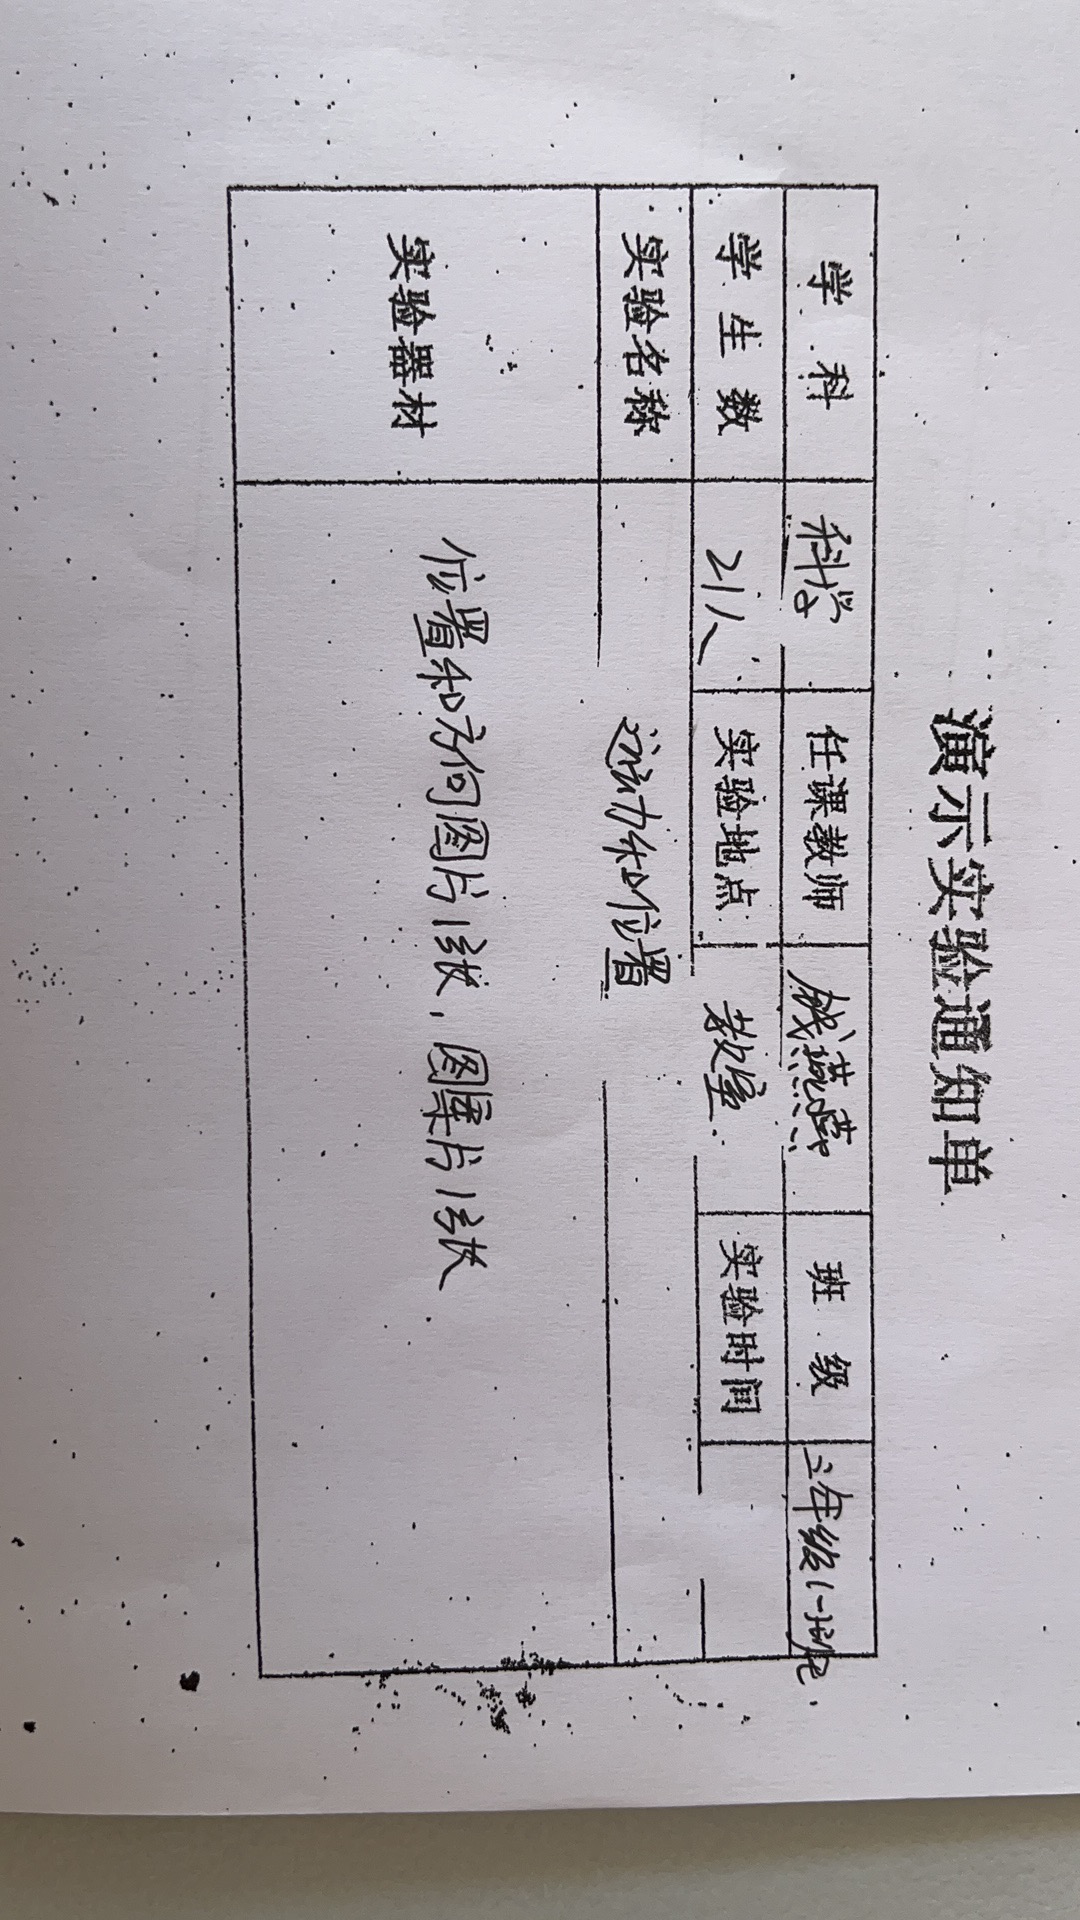 演示实验通知单
学科 科学 任课教师 钱燕燕 班级 三年级(一)班
学生数 21人 实验地点 教室 实验时间
实验名称 运动和位置
实验器材 位置和方向图片1张,图案片1张